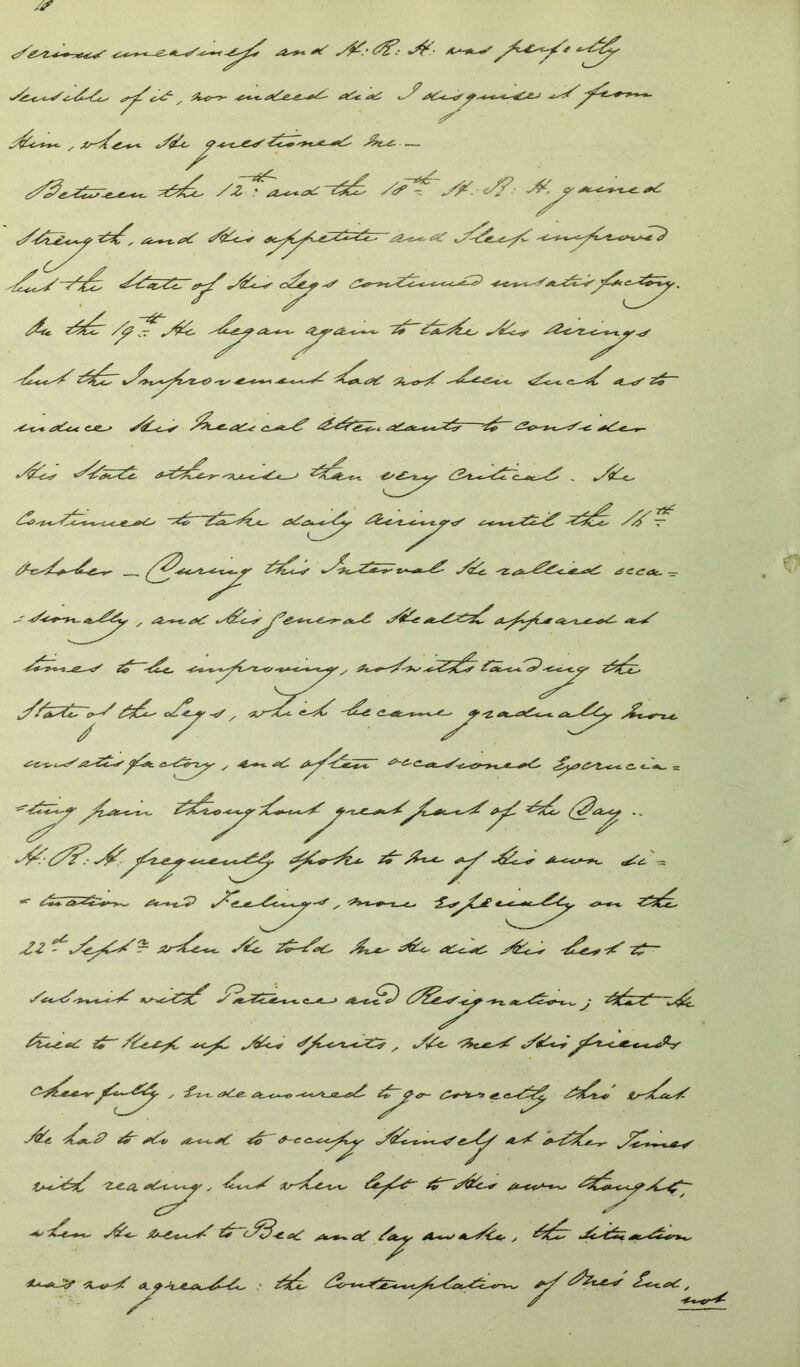 serious uneasiness and H.R.H. was perfectly
sensible of it, nor indeed did I disguise it from
Him, when He questioned me —
Between the 12th and the 18th H.R.H. gained
Strength, and His appetite and Sleep improved
but the State of His Legs continued unsatisfactory.
On the 19th He began again to take His Airings
but the Improvement had not been such as to
induce His Medical Attendants to consider
His State otherwise than very Critical. He
Continued to take daily Airings until the 16th
October — During this Interval He rallied occa=
=sionally, and His general Health appeared at
times to be improving, notwithstanding the
State of the Legs, which became gradually more
unsatisfactory, and often occasioned Excrucia=
=ting pain throughout great part of the Day..
H.R.H. frequently spoke to me of His own si=
=tuation and Feelings, more Especially on the
22d Septr when He told me He did His best to
submit with Patience and Resignation; that He
tried to Keep up His Spirits, He met His friends
chearfully, Endeavoured to go correctly thro' what
He had to do and to occupy Himself at other Times
with reading, but when left to His own thoughts,
when He went to Bed and lay awake, the Situation
was not agreable: the Contemplation of Ones End,
not